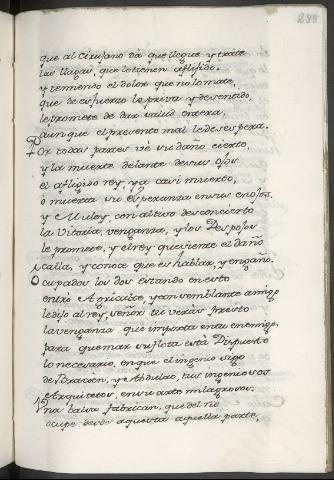 288
que al cirujano dà que llegue y trate
las llagas, que lo tienen aflijido.
y temiendo el dolor que no lo mate,
que de esfuerzo lo priva y de sentido,
le promete de dar salud entera,
aunque el presente mal le desespera.
Por todas partes vè su daño cierto,
y la muerte delante de sus ojos
el afligido rey, ya casi muerto,
ò muerta su esperanza en sus enojos.
y Muley, con altivo desconcierto
la vitoria, venganza, y los Despojos
le promete, y el rey que siente el daño
calla, y conoce que es hablar, y engaño.
Ocupados los dos estando en esto
entrò y con semblante amigo
le dijo al rey, señor tu veràs presto
la venganza que importa en tu enemigo.
para quemar su flota està Dispuesto
lo necesario, en que el ingenio sigo
de y Abdulac, tus ingeniosos
Arquitetos, en su arte milagrosos.
Una balsa fabrican, que del rio
ocupe desde aquesta aquella parte,